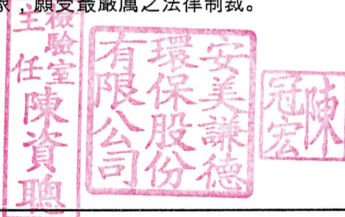 象，願受最嚴厲之法律制裁。
檢驗室
主任
陳資聰
安美謙德
環保股份
有限公司
陳
冠宏